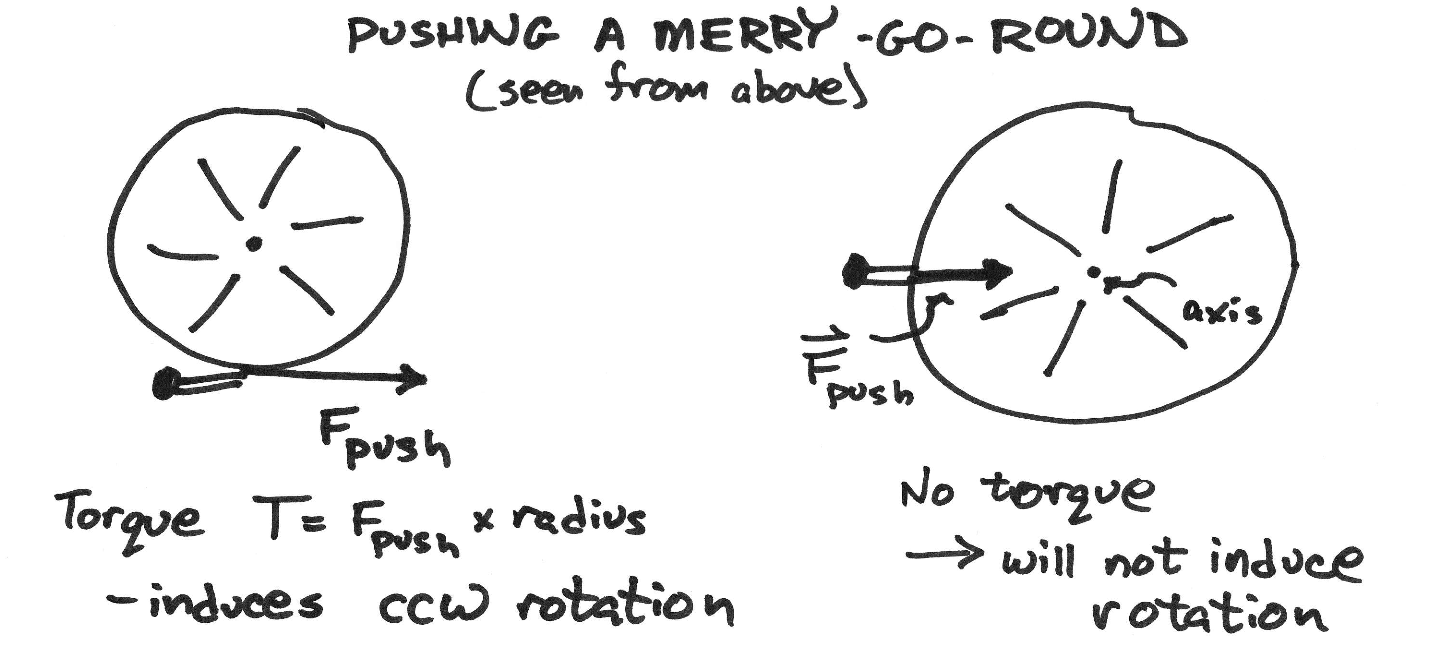 PUSHING A MERRY-GO-ROUND
(seen from above)
F push
Torque T = F push x radius
- induces ccw rotation
F push
axis
No torque
→ will not induce
rotation